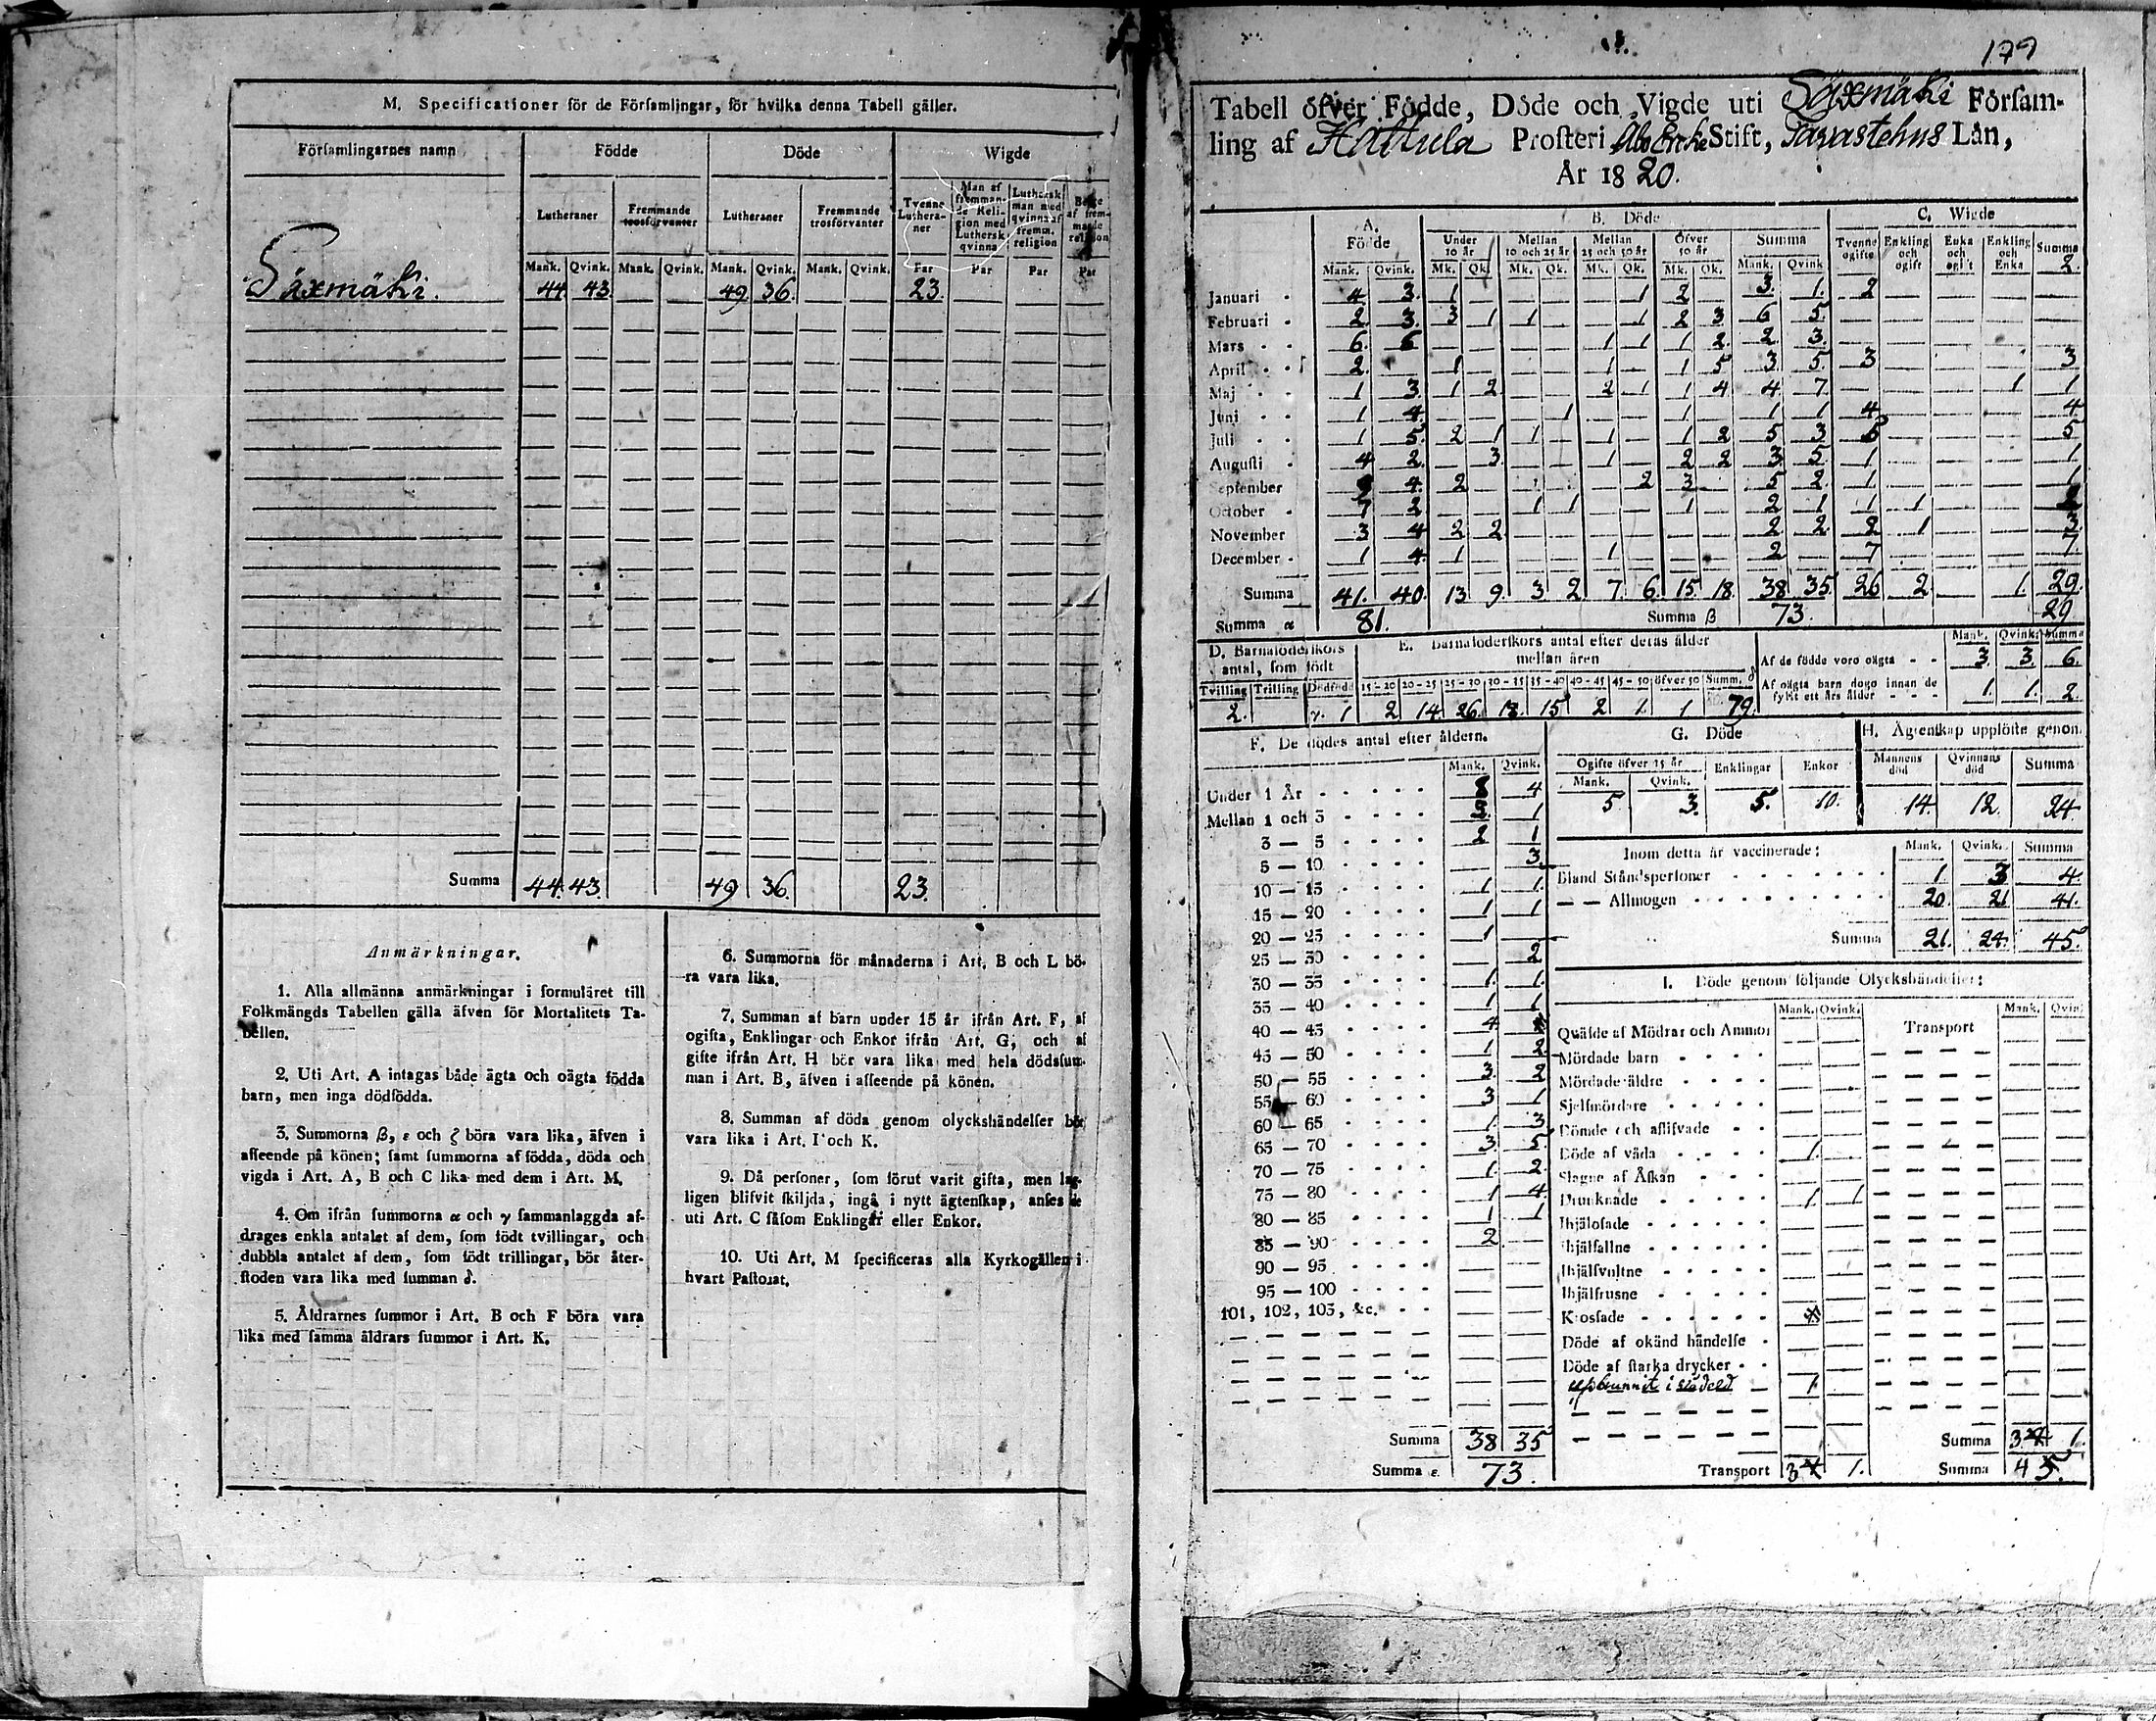 M. Specificationer för de Förſamlingar, för hvilka denna Tabell gäller.
Förſamlingarnes namn | Födde | Döde | Wigde
Lutheraner | Fremmande trosförvanter | Lutheraner | Fremmande trosförvanter | Tvenne Lutheraner | Man af fremmande Religion med Luthersk qvinna | Luthersk man med qvinna af fremm. religion | Bägge af fremmande religion
Mank. | Qvink. | Mank. | Qvink. | Mank. | Qvink. | Mank. | Qvink. | Par | Par | Par | Par
Säxmäki. | 44 | 43 | — | — | 49 | 36. | — | — | 23. | — | — | —
Summa | 44. | 43. | 49 | 36. | 23.
Anmärkningar.
1. Alla allmänna anmärkningar i formuläret till
Folkmängds Tabellen gälla äfven för Mortalitets Ta-
bellen.
2. Uti Art. A intagas både ägta och oägta födda
barn, men inga dödfödda.
3. Summorna β, ε och ζ böra vara lika, äfven i
afſeende på könen; ſamt ſummorna af födda, döda och
vigda i Art. A, B och C lika med dem i Art. M.
4. Om ifrån ſummorna α och γ ſammanlaggda af-
drages enkla antalet af dem, ſom födt tvillingar, och
dubbla antalet af dem, ſom födt trillingar, bör åter-
ſtoden vara lika med ſumman δ.
5. Åldrarnes ſummor i Art. B och F böra vara
lika med ſamma åldrars ſummor i Art. K.
6. Summorna för månaderna i Art. B och L bö-
ra vara lika.
7. Summan af barn under 15 år ifrån Art. F, af
ogiſta, Enklingar och Enkor ifrån Art. G, och af
giſte ifrån Art. H bör vara lika med hela dödsſum-
man i Art. B, äfven i afſeende på könen.
8. Summan af döda genom olyckshändelſer bör
vara lika i Art. I och K.
9. Då perſoner, ſom förut varit giſta, men lag-
ligen blifvit ſkiljda, ingå i nytt ägtenſkap, anſes de
uti Art. C ſåſom Enklingar eller Enkor.
10. Uti Art. M ſpecificeras alla Kyrkogällen i
hvart Paſtorat.
179
Tabell öfver Födde, Döde och Vigde uti Säxmäki Förſam-
ling af Hattula Proſteri Åbo Erche Stift, Tavastehus Län,
År 1820.
A. Födde | B. Döde | C. Wigde
Under 10 år | Mellan 10 och 25 år | Mellan 25 och 50 år | Öfver 50 år | Summa | Tvenne ogifte | Enkling och ogift | Enka och ogift | Enkling och Enka | Summa
Mank. | Qvink. | Mk. | Qk. | Mk. | Qk. | Mk. | Qk. | Mk. | Qk. | Mank. | Qvink
Januari | 4 | 3. | 1 | — | — | — | — | 1 | 2 | — | 3. | 1. | 2 | — | — | — | 2.
Februari | 2. | 3. | 3 | 1 | 1 | — | — | 1 | 2 | 3 | 6 | 5 | — | — | — | — | —
Mars | 6. | 6 | — | — | — | — | 1 | 1 | 1 | 2. | 2 | 3. | — | — | — | — | —
April | 2. | — | 1 | — | — | — | 1 | — | 1 | 5 | 3 | 5. | 3 | — | — | — | 3
Maj | 1 | 3. | 1 | 2 | — | — | 2 | 1 | 1 | 4 | 4 | 7. | — | — | — | 1 | 1
Juni | 1 | 4. | — | — | — | 1 | — | — | 1 | — | 1 | 1 | 4 | — | — | — | 4
Juli | 1 | 5. | 2 | 1 | 1 | — | 1 | — | 1 | 2 | 5 | 3 | 5 | — | — | — | 5
Auguſti | 4 | 2. | — | 3. | — | — | 1 | — | 2 | 2 | 3 | 5. | 1 | — | — | — | 1
September | 4. | 2 | — | — | — | — | 2 | 3 | — | 5 | 2. | 1 | — | — | — | 1
October | 7 | 2 | — | — | 1 | 1 | — | — | 1 | — | 2 | 1 | 1 | 1 | — | —
November | 3 | 4 | 2 | 2 | — | — | — | — | — | — | 2 | 2 | 2 | 1 | — | — | 3
December | 1 | 4. | 1 | — | — | — | 1 | — | — | — | 2 | — | 7 | — | — | — | 7.
Summa | 41. | 40. | 13 | 9. | 3. | 2. | 7. | 6. | 15. | 18. | 38 | 35. | 26 | 2 | — | 1. | 29.
Summa α 81. Summa β 73. 29
D. Barnaföderſkors antal, ſom födt
Tvilling | Trilling | Dödfödd
2. | | γ. 1
E. Barnaföderſkors antal efter deras ålder mellan åren
15-20 | 20-25 | 25-30 | 30-35 | 35-40 | 40-45 | 45-50 | öfver 50 | Summ. δ
2 | 14. | 26. | 18. | 15 | 2 | 1. | 1 | 79.
Mank. | Qvink. | Summa
Af de födde voro oägta | 3. | 3. | 6.
Af oägta barn dogo innan de fyllt ett års ålder | 1. | 1. | 2.
F. De dödes antal efter åldern.
Mank. | Qvink.
Under 1 År | 8 | 4
Mellan 1 och 3 | 3. | 1
3 — 5 | 2 | 1
5 — 10 | — | 3.
10 — 15 | 1 | 1.
15 — 20 | 1 | 1
20 — 25 | 1 | —
25 — 30 | — | 2
30 — 35 | 1. | 1.
35 — 40 | 1 | 1
40 — 45 | 4
45 — 50 | 1 | 2
50 — 55 | 3. | 2
55 — 60 | 3 | 1
60 — 65 | 1. | 3
65 — 70 | 3. | 5
70 — 75 | 1. | 2
75 — 80 | 1 | 4
80 — 85 | 1 | 1
85 — 90 | 2 | —
90 — 95 | — | —
95 — 100 | — | —
101, 102, 103, &c. | — | —
Summa | 38 | 35
Summa ε. 73.
G. Döde
Ogifte öfver 15 år | Enklingar | Enkor
Mank. | Qvink.
5 | 3. | 5. | 10.
H. Ägtenſkap upplöſte genom
Mannens död | Qvinnans död | Summa
14. | 12. | 24.
Inom detta år vaccinerade: | Mank. | Qvink. | Summa
Bland Ståndsperſoner | 1. | 3 | 4.
— — Allmogen | 20. | 21 | 41.
Summa | 21. | 24. | 45.
I. Döde genom följande Olyckshändelſer:
Mank. | Qvink. | Transport | Mank. | Qvin
Quäfde af Mödrar och Ammor
Mördade barn
Mördade äldre
Sjelfmördare
Dömde och afliſvade
Döde af våda | 1.
Slagne af Åſkan
Drunknade | 1. | 1
Ihjäloſade
Ihjälfallne
Ihjälſvultne
Ihjälfrusne
Kroſſade
Döde af okänd händelſe
Döde af ſtarka drycker
upbrunnit i vådeld — 1.
Summa | 3 | 1
Transport | 3 | 1. | Summa | 4